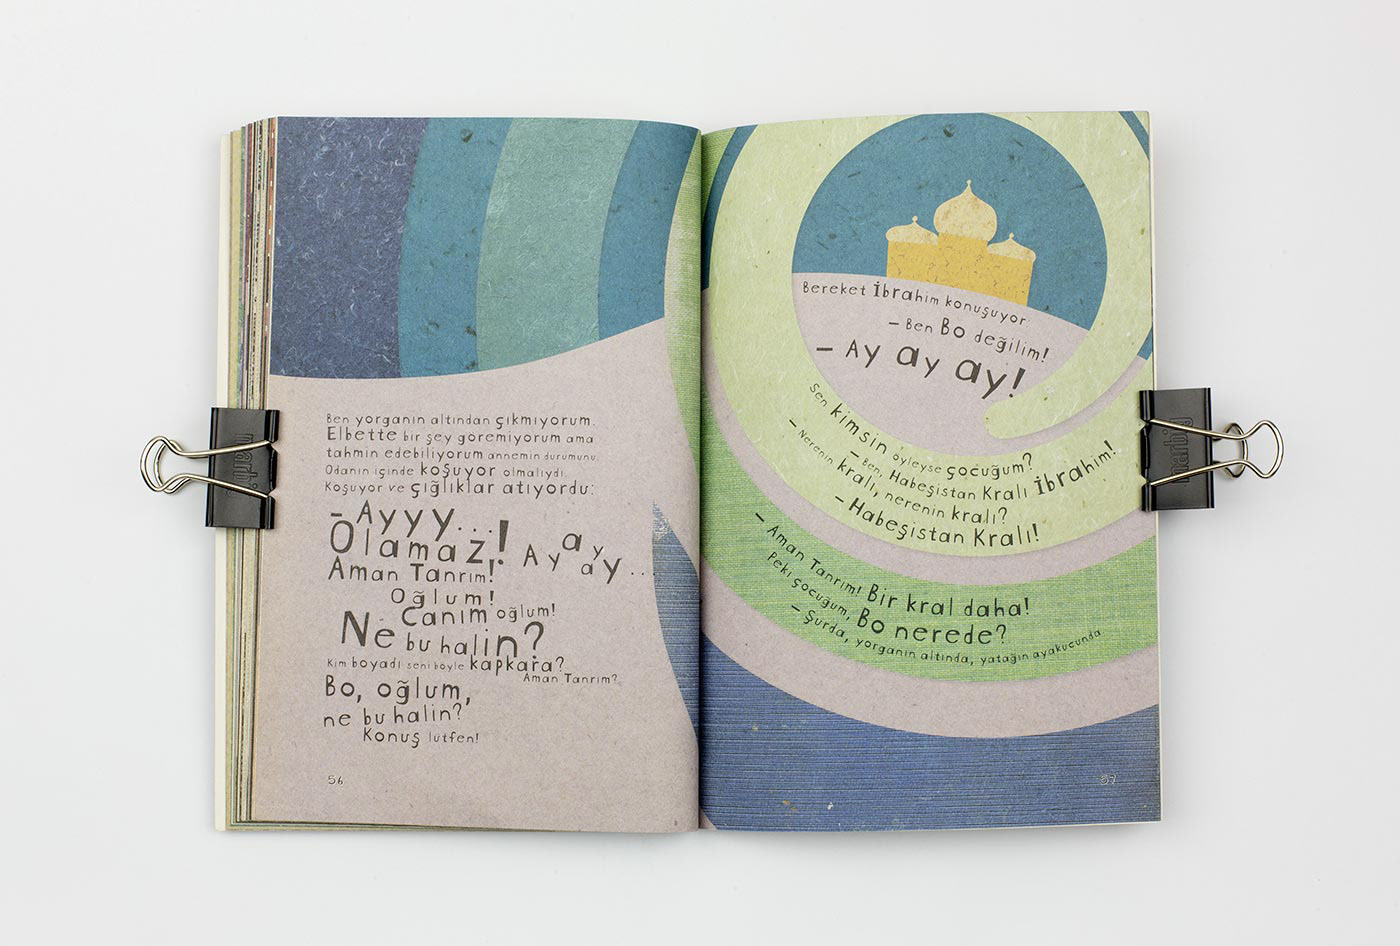 Ben yorganın altından çıkmıyorum.
Elbette bir şey göremiyorum ama
tahmin edebiliyorum annemin durumunu.
Odanın içinde koşuyor olmalıydı.
Koşuyor ve çığlıklar atıyordu:
– Ayyy...!
Olamaz! Ay ay ay...
Aman Tanrım!
Oğlum!
Canım oğlum!
Ne bu halin?
Kim boyadı seni böyle kapkara?
Aman Tanrım?
Bo, oğlum,
ne bu halin?
Konuş lütfen!
56
Bereket İbrahim konuşuyor
– Ben Bo değilim!
– Ay ay ay!
Sen kimsin öyleyse çocuğum?
– Ben, Habeşistan Kralı İbrahim!
– Nerenin kralı, nerenin kralı?
– Habeşistan Kralı!
– Aman Tanrım! Bir kral daha!
Peki çocuğum, Bo nerede?
– Şurda, yorganın altında, yatağın ayakucunda
57
marbig